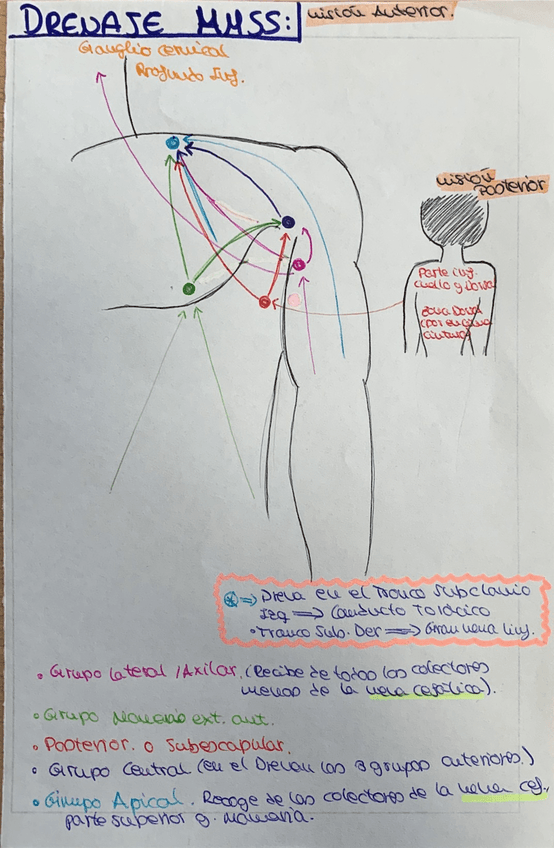 DRENAJE MMSS:
Visión Anterior.
Ganglio cervical
Profundo Inf.
Visión
Posterior
Parte inf.
cuello y Dorso
zona Dorsal
(por encima
cintura)
⊛ ⇒ Drena en el Tronco Subclavio
Izq ⇒ Conducto Torácico
• Tronco Sub. Der ⇒ Gran vena Linf.
• Grupo lateral/Axilar. (Recibe de todos los colectores
menos de la vena cefálica).
• Grupo Mamario ext. ant.
• Posterior o Subescapular.
• Grupo Central (en el Drenan los 3 grupos anteriores.)
• Grupo Apical. Recoge de los colectores de la vena cef.,
parte superior g. Mamaria.